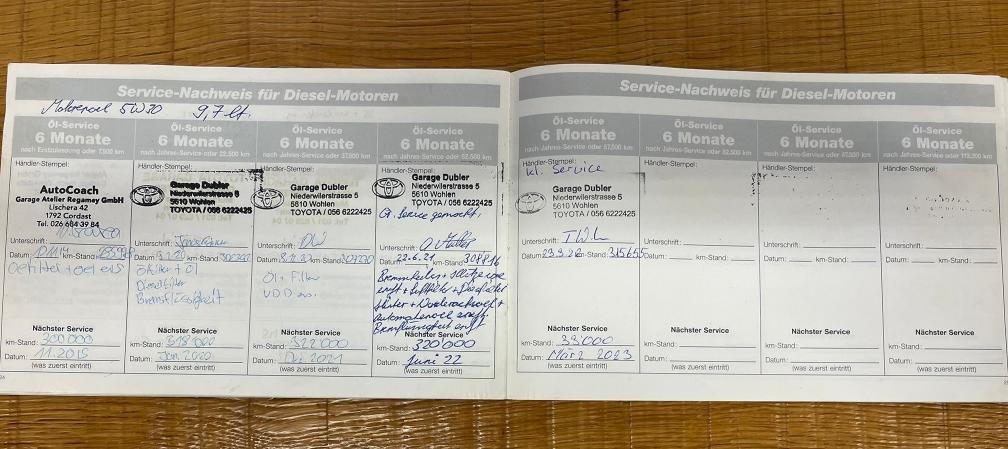 Service-Nachweis für Diesel-Motoren
Motorenoel 5W30 9,7 lt.
Öl-Service
6 Monate
nach Erstzulassung oder 7.500 km
Händler-Stempel:
AutoCoach
Garage Atelier Regamey GmbH
Lischera 42
1792 Cordast
Tel. 026 684 39 84
Unterschrift:
Datum: km-Stand:
Nächster Service
km-Stand: 300'000
Datum: 11.2015
(was zuerst eintritt)
Öl-Service
6 Monate
nach Jahres-Service oder 22.500 km
Händler-Stempel:
Garage Dubler
Niederwilerstrasse 5
5610 Wohlen
TOYOTA / 056 6222425
Unterschrift:
Datum: km-Stand:
Ölfilter + Öl
Dieselfilter
Bremsflüssigkeit
Nächster Service
km-Stand: 318'000
Datum: Jan. 2020
(was zuerst eintritt)
Öl-Service
6 Monate
nach Jahres-Service oder 37.500 km
Händler-Stempel:
Garage Dubler
Niederwilerstrasse 5
5610 Wohlen
TOYOTA / 056 6222425
Unterschrift:
Datum: km-Stand:
Öl + Filter
Nächster Service
km-Stand: 322'000
Datum: Dez. 2021
(was zuerst eintritt)
Öl-Service
6 Monate
nach Jahres-Service oder 52.500 km
Händler-Stempel:
Garage Dubler
Niederwilerstrasse 5
5610 Wohlen
TOYOTA / 056 6222425
Gr. Service gemacht.
Unterschrift:
Datum: 22.6.21 km-Stand: 308'816
Nächster Service
km-Stand: 320'000
Datum: Juni 22
(was zuerst eintritt)
Service-Nachweis für Diesel-Motoren
Öl-Service
6 Monate
nach Jahres-Service oder 67.500 km
Händler-Stempel:
kl. Service
Garage Dubler
Niederwilerstrasse 5
5610 Wohlen
TOYOTA / 056 6222425
Unterschrift:
Datum: km-Stand: 315655
Nächster Service
km-Stand: 33'000
Datum: März 2023
(was zuerst eintritt)
Öl-Service
6 Monate
nach Jahres-Service oder 82.500 km
Händler-Stempel:
Unterschrift:
Datum: km-Stand:
Nächster Service
km-Stand:
Datum:
(was zuerst eintritt)
Öl-Service
6 Monate
nach Jahres-Service oder 97.500 km
Händler-Stempel:
Unterschrift:
Datum: km-Stand:
Nächster Service
km-Stand:
Datum:
(was zuerst eintritt)
Öl-Service
6 Monate
nach Jahres-Service oder 112.500 km
Händler-Stempel:
Unterschrift:
Datum: km-Stand:
Nächster Service
km-Stand:
Datum:
(was zuerst eintritt)